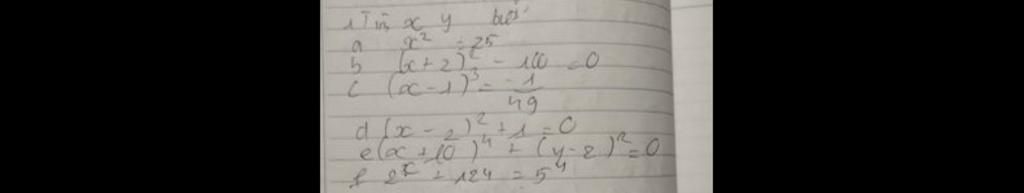 1 Tìm x y biết
a x² = 25
b (x + 2)² - 100 = 0
c (x - 1)³ = -1/49
d (x - 2)² + 1 = 0
e (x + 10)⁴ + (y - 2)² = 0
f 2ˣ + 124 = 5⁴